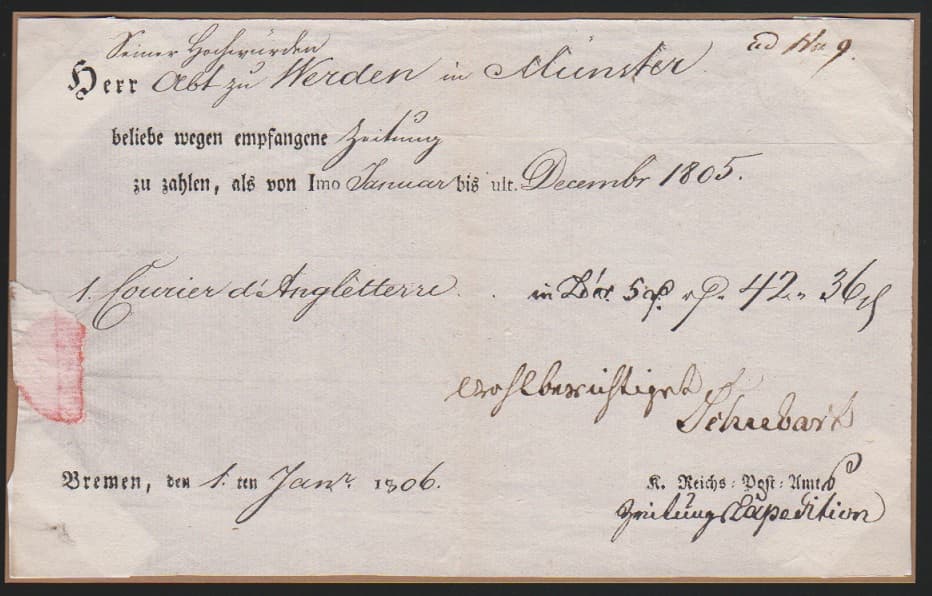 Seiner Hochwürden
ad No 9.
Herr Abt zu Werden in Münster.
beliebe wegen empfangene Zeitung
zu zahlen, als von Imo Januar bis ult. Decembr 1805.
1. Courier d'Angletterre . . in Ld'or 5 42 36
wohlberichtiget
Schubart
Bremen, den 1. ten Janr. 1806.
K. Reichs-Post-Amts
Zeitungs Expedition